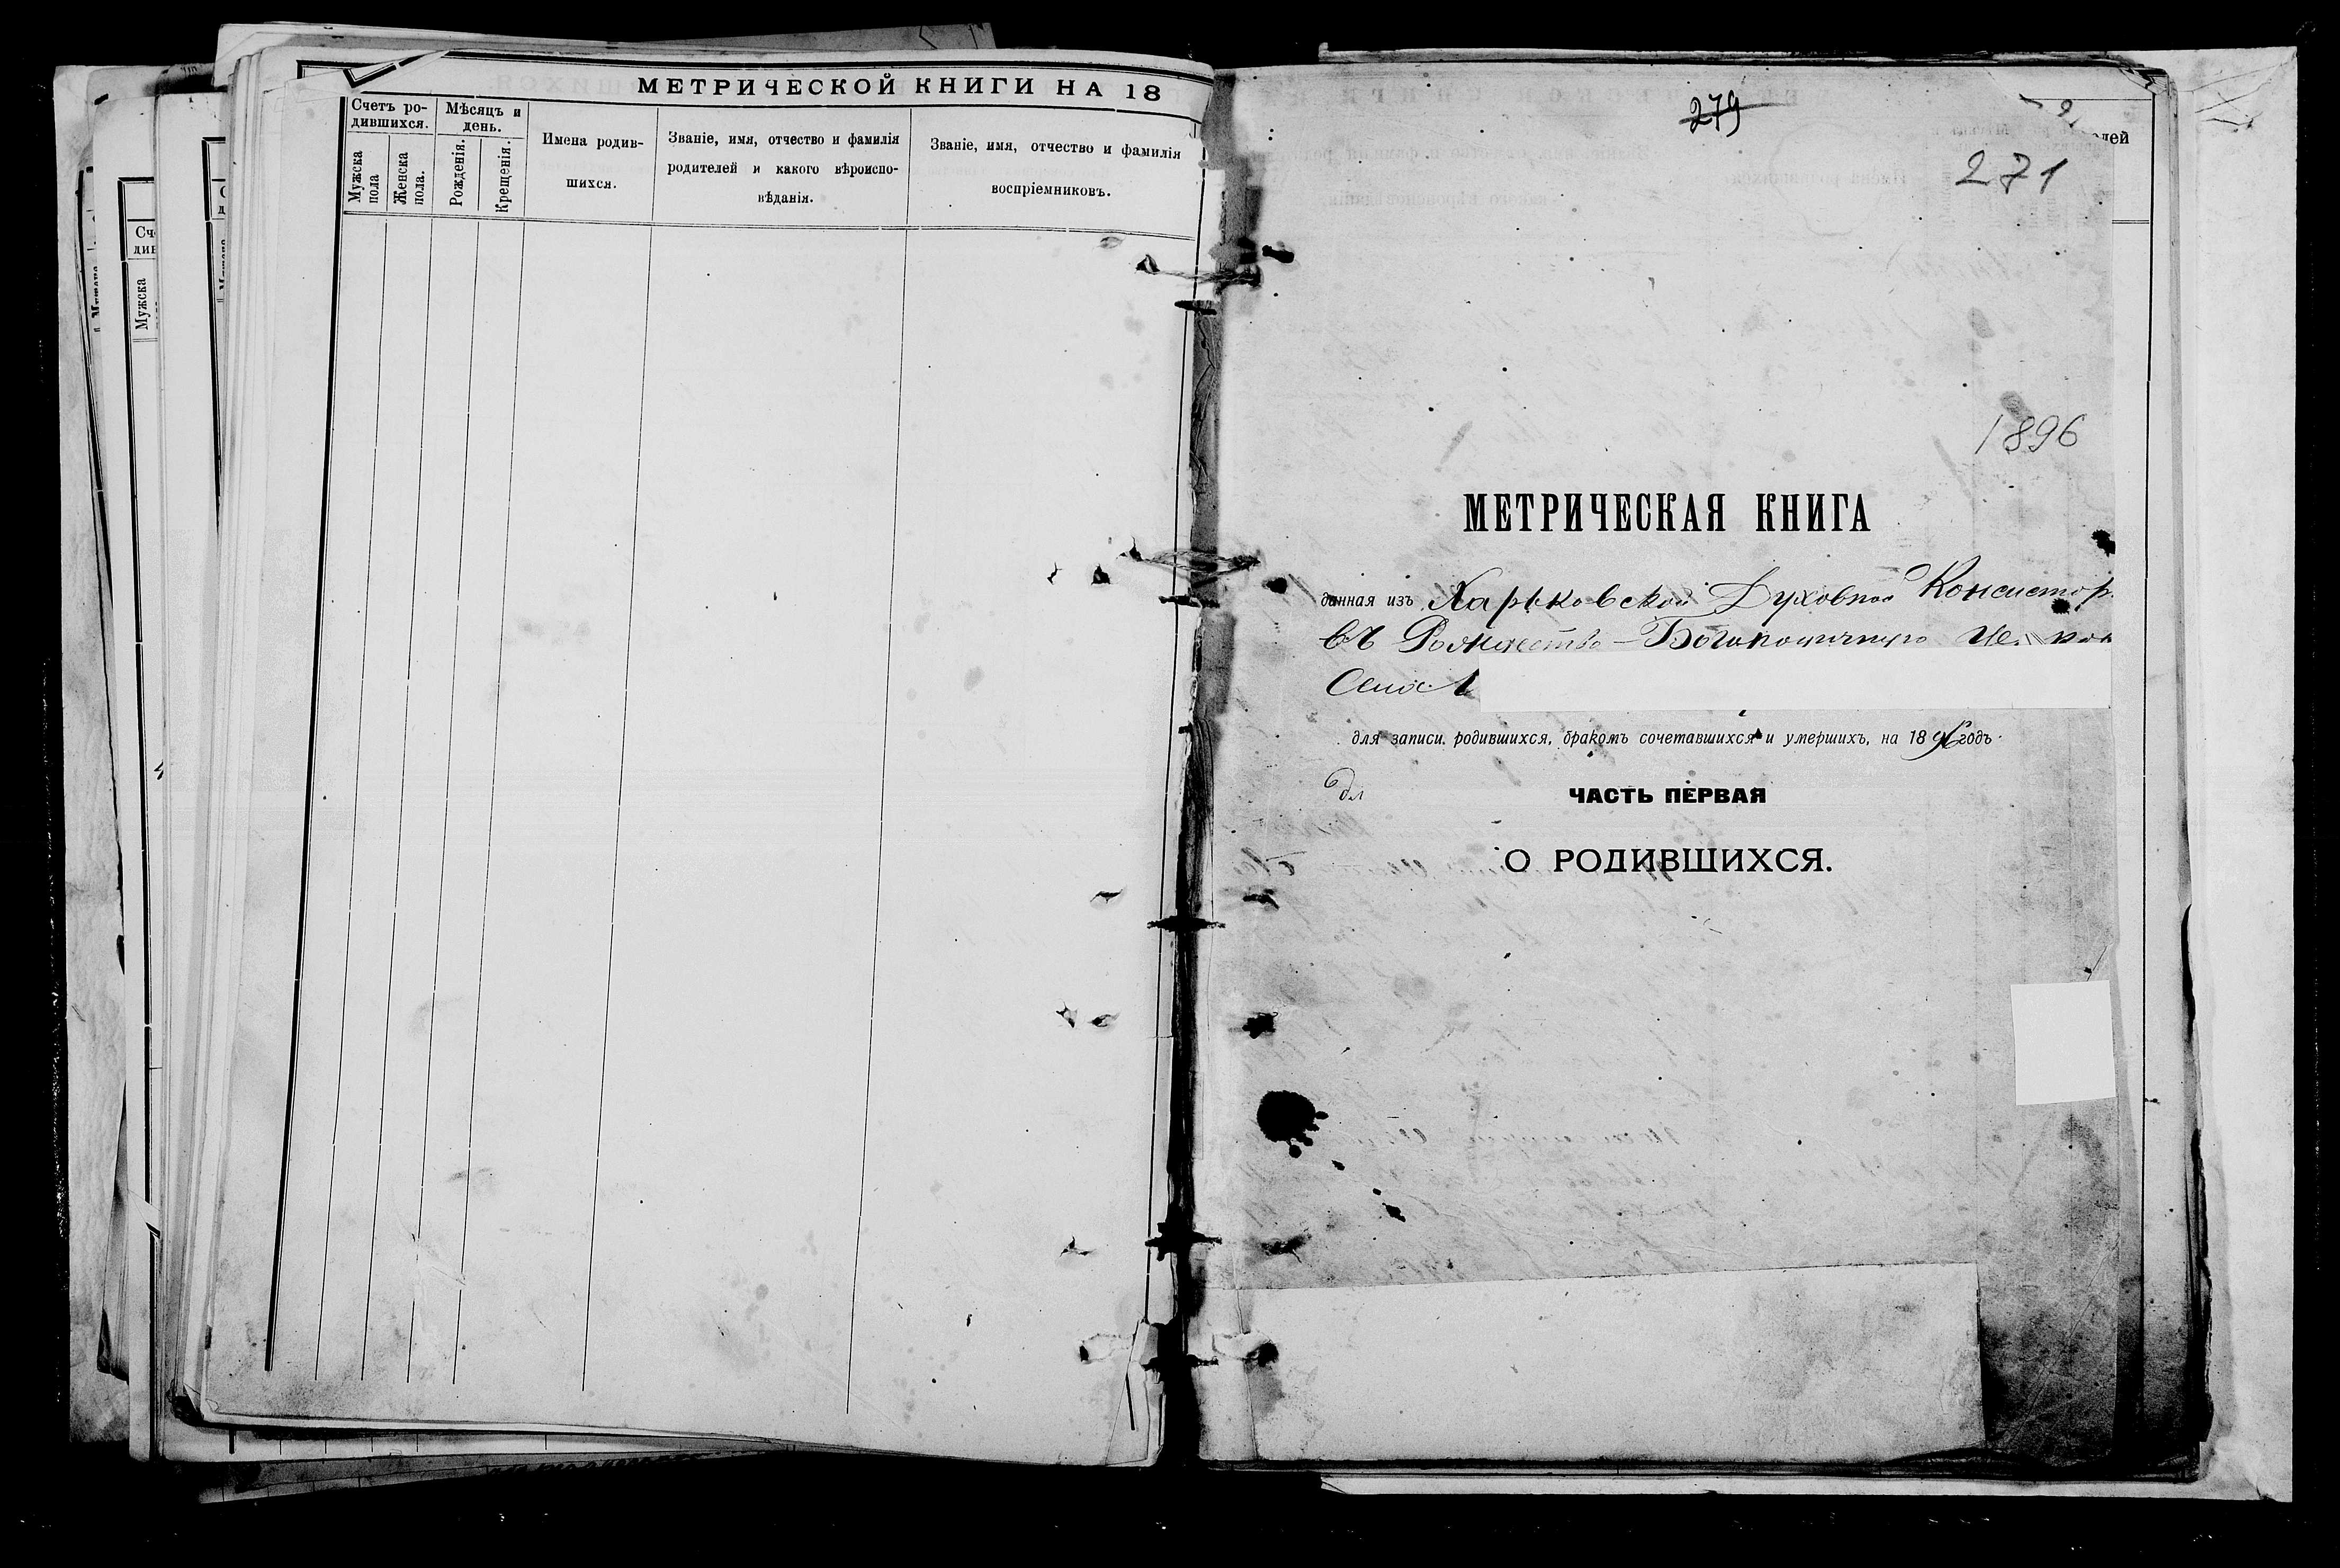 МЕТРИЧЕСКОЙ КНИГИ НА 18
Счетъ ро-
дившихся.
Мѣсяцъ и
день.
Мужска
пола
Женска
пола.
Рожденія.
Крещенія.
Имена родив-
шихся.
Званіе, имя, отчество и фамилія
родителей и какого вѣроиспо-
вѣданія.
Званіе, имя, отчество и фамилія
воспріемниковъ.
Мужска
279
271
1896
МЕТРИЧЕСКАЯ КНИГА
данная изъ Харьковской Духовной Консистор.
въ Рождество-Богородичную
для записи родившихся, бракомъ сочетавшихся и умершихъ, на 1896 годъ.
ЧАСТЬ ПЕРВАЯ
О РОДИВШИХСЯ.